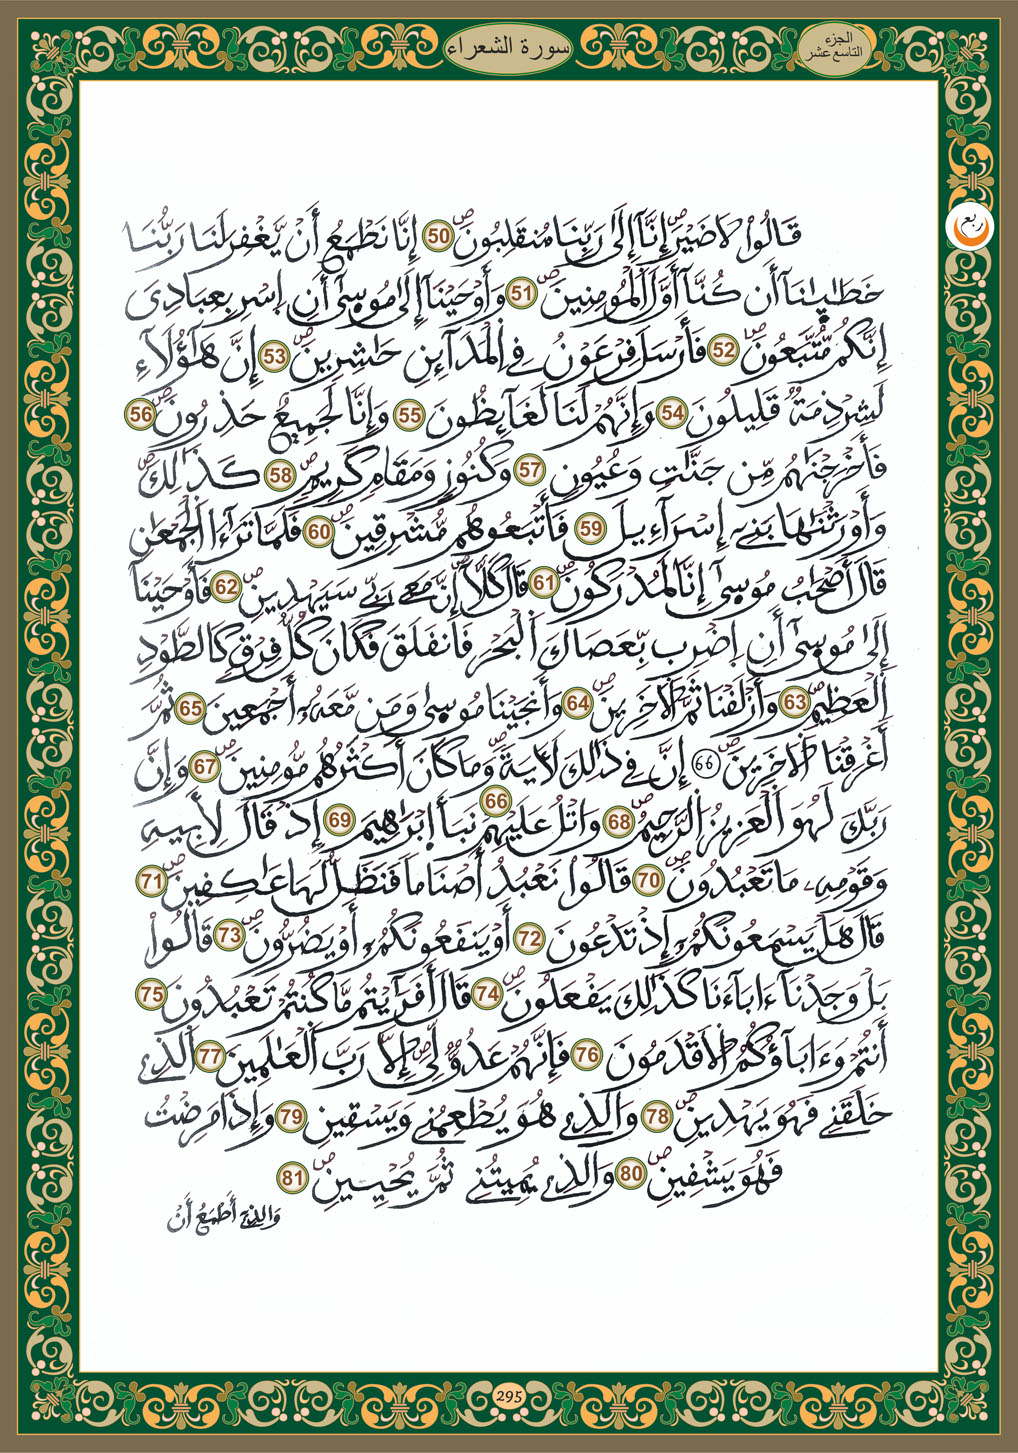 الجزء
التاسع عشر
سورة الشعراء
ربع
قَالُواْ لَا ضَيْرَۖ إِنَّآ إِلَىٰ رَبِّنَا مُنقَلِبُونَۖ 50 إِنَّا نَطْمَعُ أَنْ يَّغْفِرَ لَنَا رَبُّنَا
خَطَٰيَٰنَآ أَن كُنَّآ أَوَّلَ اَلْمُومِنِينَۖ 51 وَأَوْحَيْنَآ إِلَىٰ مُوسَىٰٓ أَنِ اِسْرِ بِعِبَادِىَ
إِنَّكُم مُّتَّبَعُونَۖ 52 فَأَرْسَلَ فِرْعَوْنُ فِے اِلْمَدَآئِنِ حَٰشِرِينَۖ 53 إِنَّ هَٰٓؤُلَآءِ
لَشِرْذِمَةٌ قَلِيلُونَ 54 وَإِنَّهُمْ لَنَا لَغَآئِظُونَ 55 وَإِنَّا لَجَمِيعٌ حَذِرُونَۖ 56
فَأَخْرَجْنَٰهُم مِّن جَنَّٰتٍ وَعُيُونٍ 57 وَكُنُوزٍ وَمَقَامٍ كَرِيمٍۖ 58 كَذَٰلِكَۖ
وَأَوْرَثْنَٰهَا بَنِےٓ إِسْرَآءِيلَ 59 فَأَتْبَعُوهُم مُّشْرِقِينَۖ 60 فَلَمَّا تَرَٰٓءَا اَلْجَمْعَٰنِ
قَالَ أَصْحَٰبُ مُوسَىٰٓ إِنَّا لَمُدْرَكُونَۖ 61 قَالَ كَلَّآۖ إِنَّ مَعِے رَبِّے سَيَهْدِينِۖ 62 فَأَوْحَيْنَآ
إِلَىٰ مُوسَىٰٓ أَنِ اِضْرِب بِّعَصَاكَ اَلْبَحْرَ فَانفَلَقَ فَكَانَ كُلُّ فِرْقٍ كَالطَّوْدِ
اِلْعَظِيمِۖ 63 وَأَزْلَفْنَا ثَمَّ اَلَاخَرِينَۖ 64 وَأَنجَيْنَا مُوسَىٰ وَمَن مَّعَهُۥٓ أَجْمَعِينَۖ 65 ثُمَّ
أَغْرَقْنَا اَلَاخَرِينَۖ 66 إِنَّ فِے ذَٰلِكَ لَأٓيَةًۖ وَمَا كَانَ أَكْثَرُهُم مُّومِنِينَۖ 67 وَإِنَّ
رَبَّكَ لَهُوَ اَلْعَزِيزُ اُلرَّحِيمُۖ 68 وَاتْلُ عَلَيْهِمْ 66 نَبَأَ اَ۬بْرَٰهِيمَ 69 إِذْ قَالَ لِأَبِيهِ
وَقَوْمِهِۦ مَا تَعْبُدُونَۖ 70 قَالُواْ نَعْبُدُ أَصْنَاماً فَنَظَلُّ لَهَا عَٰكِفِينَۖ 71
قَالَ هَلْ يَسْمَعُونَكُمُۥٓ إِذْ تَدْعُونَ 72 أَوْ يَنفَعُونَكُمُۥٓ أَوْ يَضُرُّونَۖ 73 قَالُواْ
بَلْ وَجَدْنَآ ءَابَآءَنَا كَذَٰلِكَ يَفْعَلُونَۖ 74 قَالَ أَفَرَٰٓيْتُم مَّا كُنتُمْ تَعْبُدُونَ 75
أَنتُمْ وَءَابَآؤُكُمُ اُلَاقْدَمُونَ 76 فَإِنَّهُمْ عَدُوٌّ لِّيَ إِلَّا رَبَّ اَلْعَٰلَمِينَ 77 اَلذِے
خَلَقَنِے فَهُوَ يَهْدِينِۖ 78 وَالذِے هُوَ يُطْعِمُنِے وَيَسْقِينِ 79 وَإِذَا مَرِضْتُ
فَهُوَ يَشْفِينِۖ 80 وَالذِے يُمِيتُنِے ثُمَّ يُحْيِينِۖ 81
وَالذِےٓ أَطْمَعُ أَنْ
295